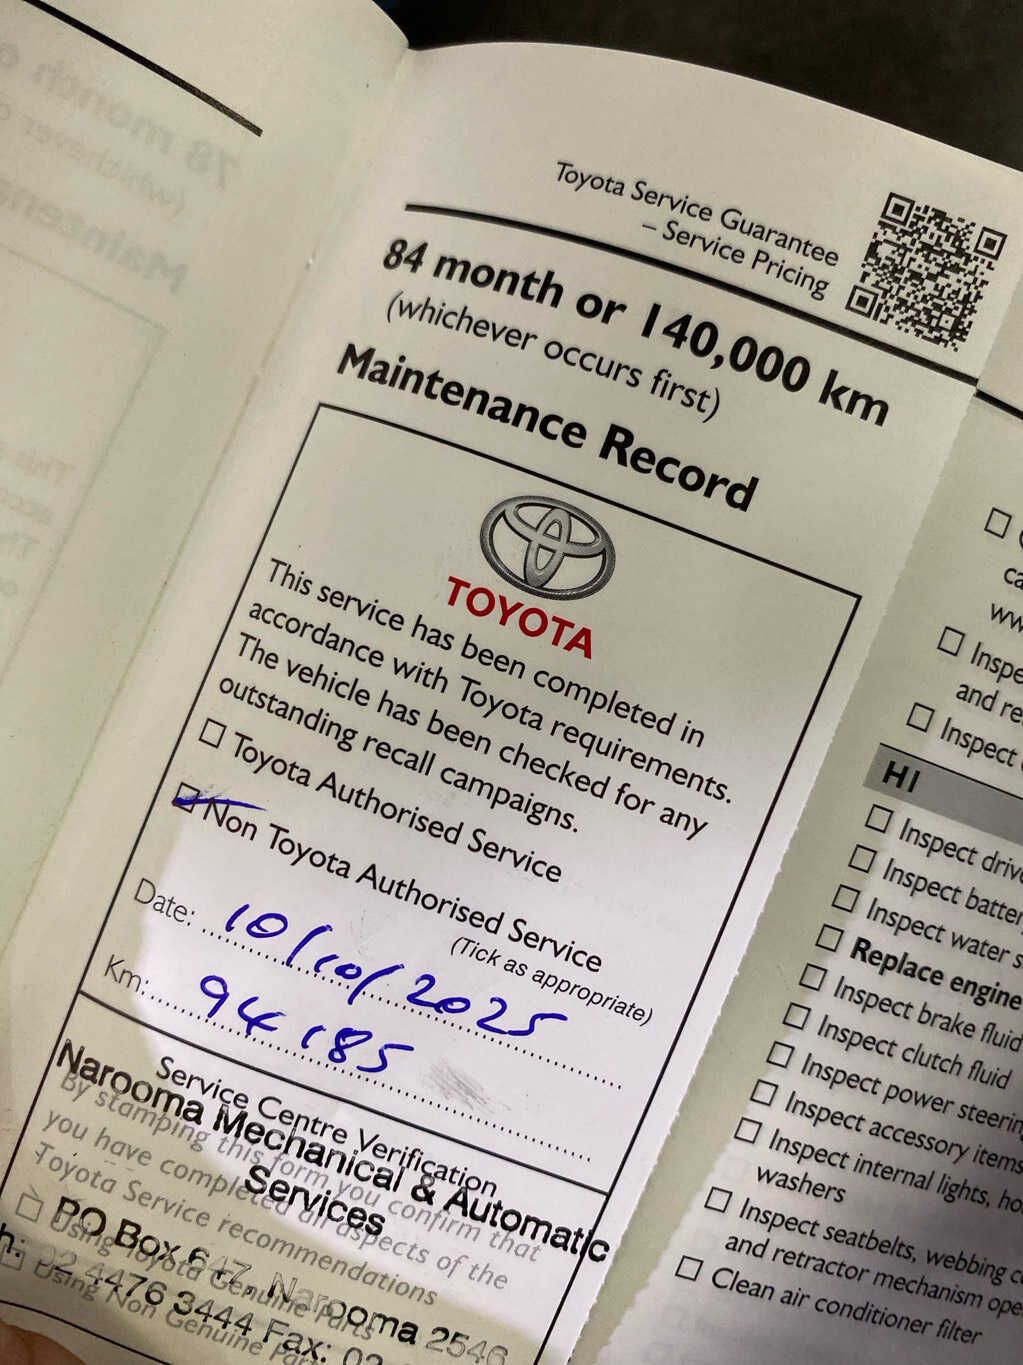 Toyota Service Guarantee
– Service Pricing
84 month or 140,000 km
(whichever occurs first)
Maintenance Record
TOYOTA
This service has been completed in
accordance with Toyota requirements.
The vehicle has been checked for any
outstanding recall campaigns.
Toyota Authorised Service
Non Toyota Authorised Service
(Tick as appropriate)
Date: 10/10/2025
Km: 94185
Service Centre Verification
Narooma Mechanical & Automatic
Services
PO Box 647, Narooma 2546
02 4476 3444 Fax: 02
By stamping this form you confirm that
you have completed all aspects of the
Toyota Service recommendations
Using Toyota Genuine Parts
Using Non Genuine Parts
78 month o
(whichever o
Mainten
Inspe
and re
Inspect
HI
Inspect drive
Inspect batter
Inspect water s
Replace engine
Inspect brake fluid
Inspect clutch fluid
Inspect power steerin
Inspect accessory items
Inspect internal lights, ho
washers
Inspect seatbelts, webbing c
and retractor mechanism ope
Clean air conditioner filter